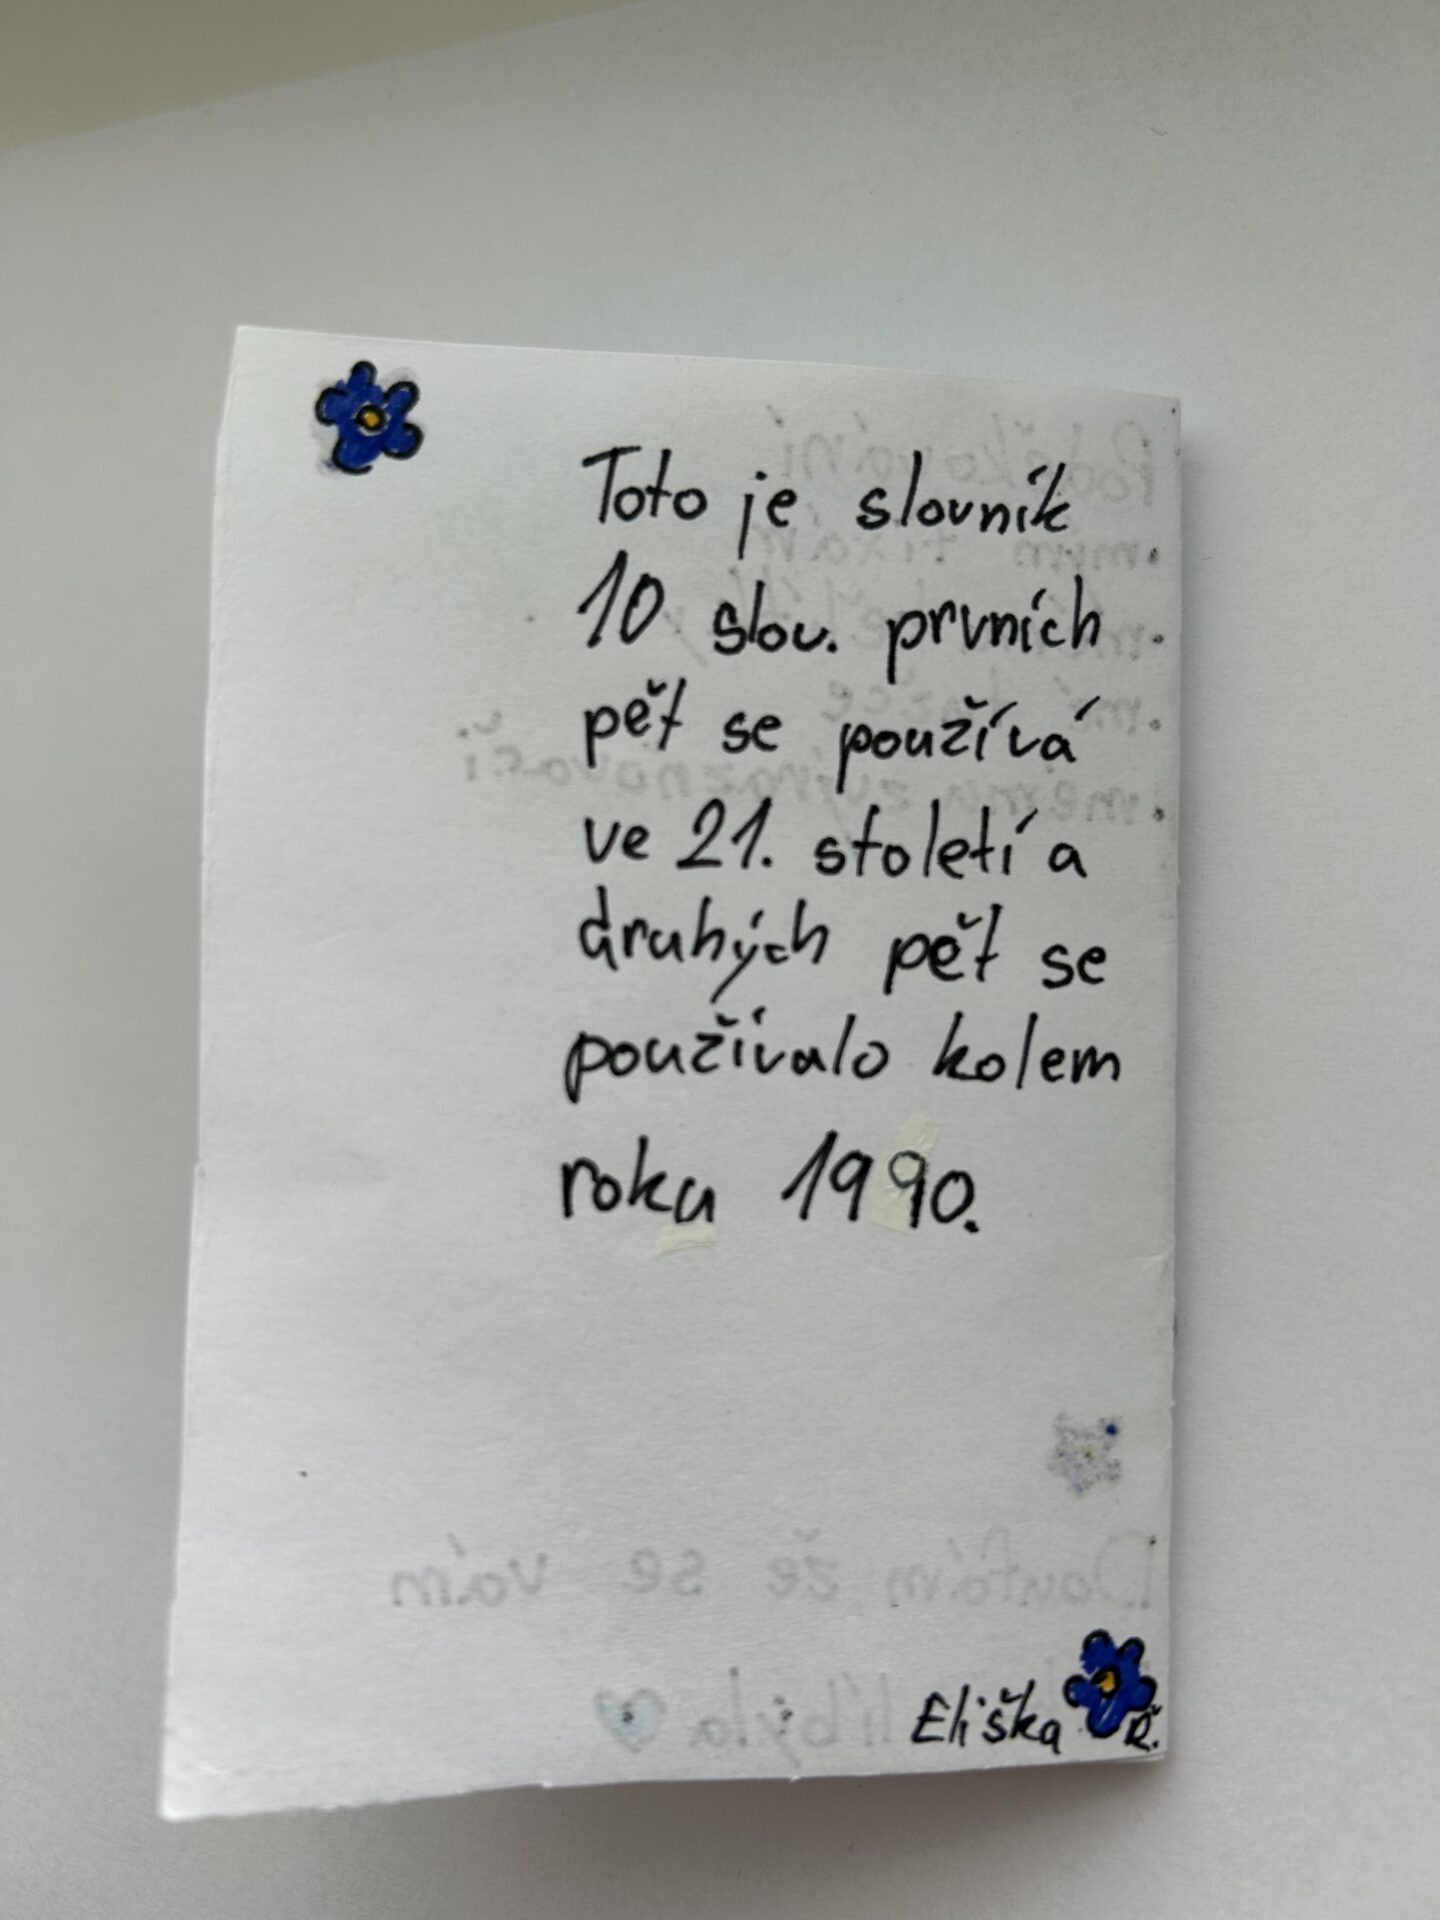 Toto je slovník
10 slov. prvních
pět se používá
ve 21. století a
druhých pět se
používalo kolem
roku 1990.
Doufám že se vám
líbyla
Eliška Ř.